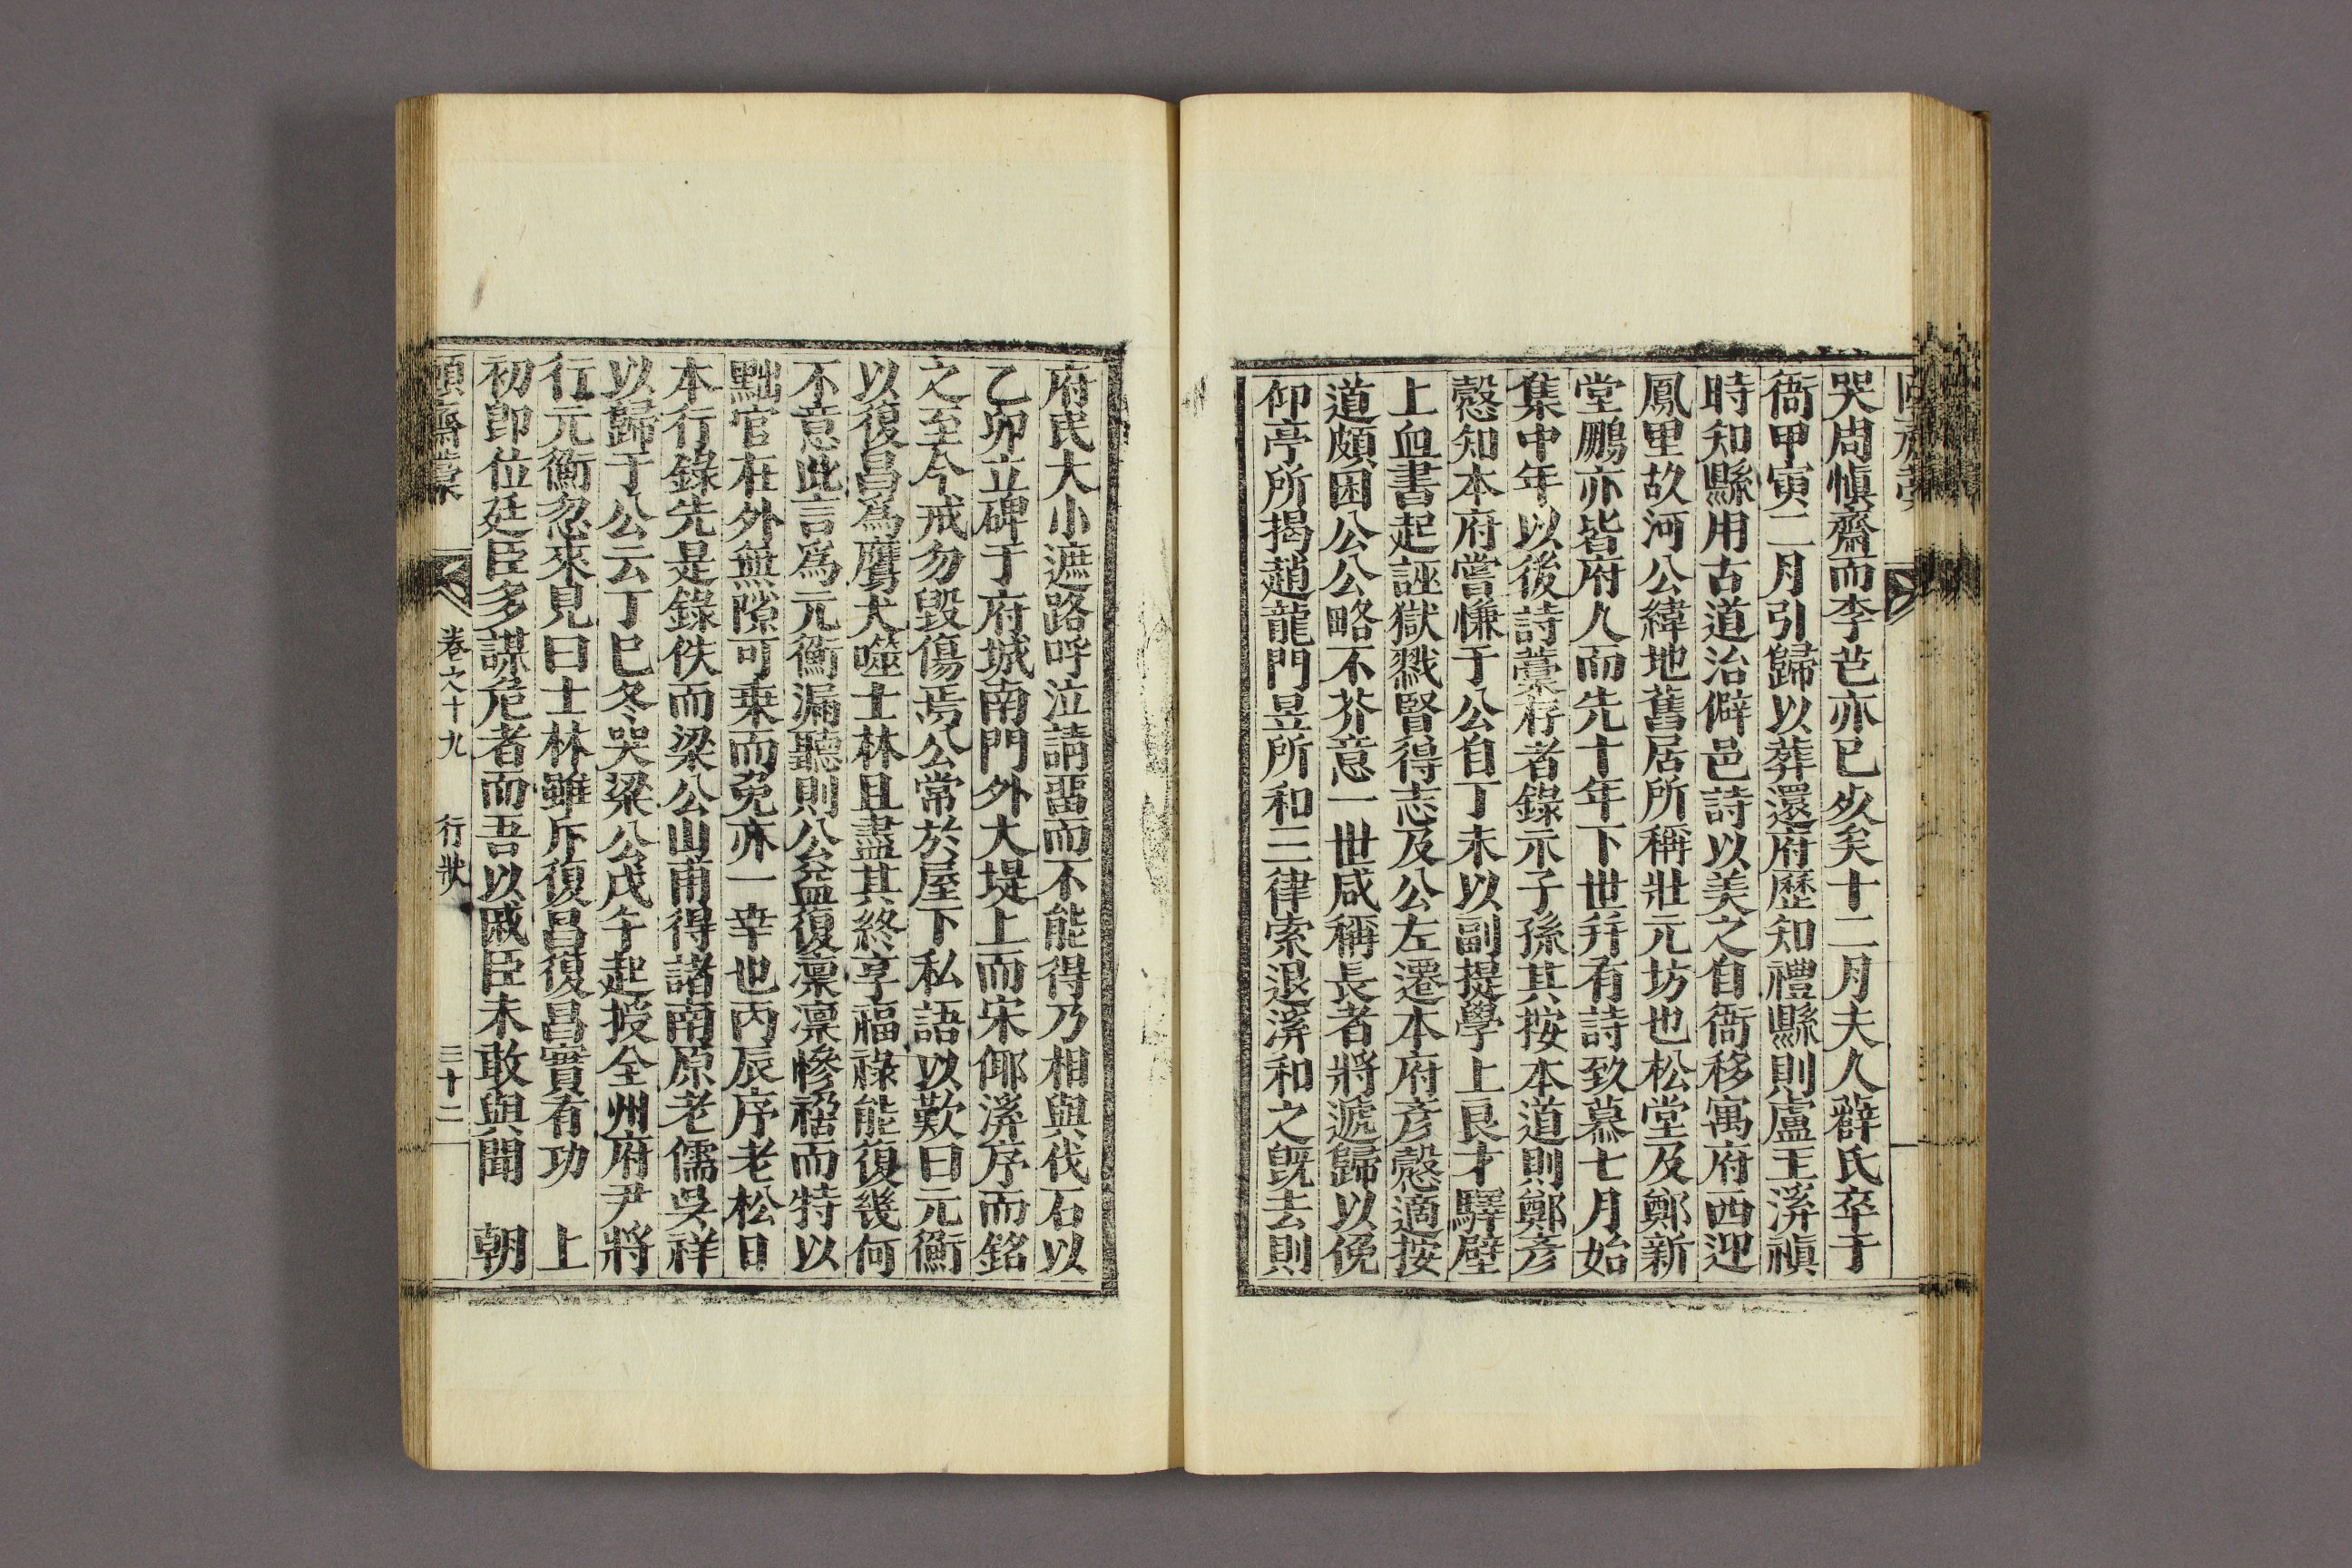 哭周愼齋而李芑亦已死矣十二月夫人薛氏卒于
衙甲寅二月引歸以葬還府歷知禮縣則盧玉溪禛
時知縣用古道治僻邑詩以美之自衙移寓府西迎
鳳里故河公緯地舊居所稱壯元坊也松堂及鄭新
堂鵬亦皆府人而先十年下世幷有詩致慕七月始
集中年以後詩藁存者錄示子孫其按本道則鄭彦
慤知本府嘗慊于公自丁未以副提學上良才驛壁
上血書起誣獄戮賢得志及公左遷本府彦慤適按
道頗困公公略不芥意一世咸稱長者將遞歸以俛
仰亭所揭趙龍門昱所和三律索退溪和之旣去則
府民大小遮路呼泣請畱而不能得乃相與伐石以
乙卯立碑于府城南門外大堤上而宋俹溪序而銘
之至今戒勿毀傷焉公常於屋下私語以歎曰元衡
以復昌爲鷹犬噬士林且盡其終享福祿能復幾何
不意此言爲元衡漏聽則公益復凜凜慘褣而特以
黜官在外無隙可乗而免亦一幸也丙辰序老松日
本行錄先是錄佚而梁公山甫得諸南原老儒吳祥
以歸于公云丁巳冬哭梁公戊午起授全州府尹將
行元衡忽來見曰士林雖斥復昌復昌實有功　上
初卽位廷臣多謀危者而吾以戚臣未敢與聞　朝
頤齋藁　卷之十九　行狀　三十二